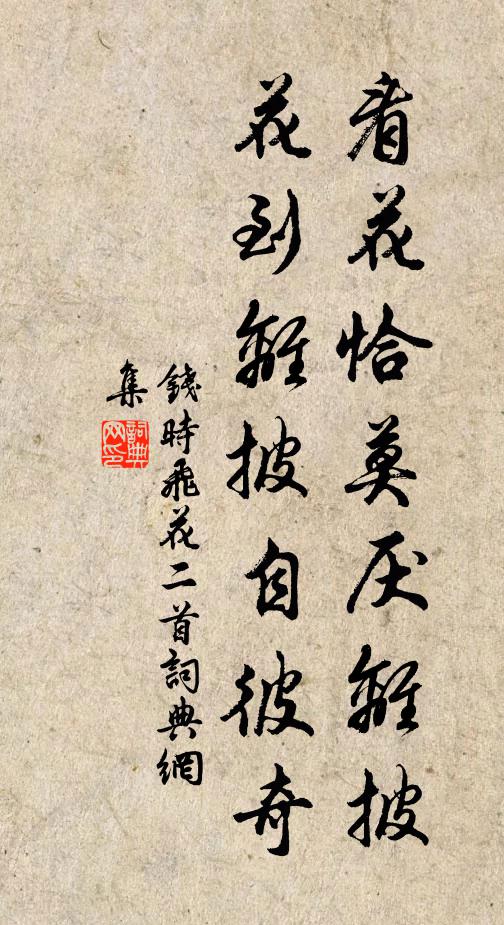 看花恰莫厌離披
花到離披自彼奇
錢時飛花二首詞典網
集
詞典
网印